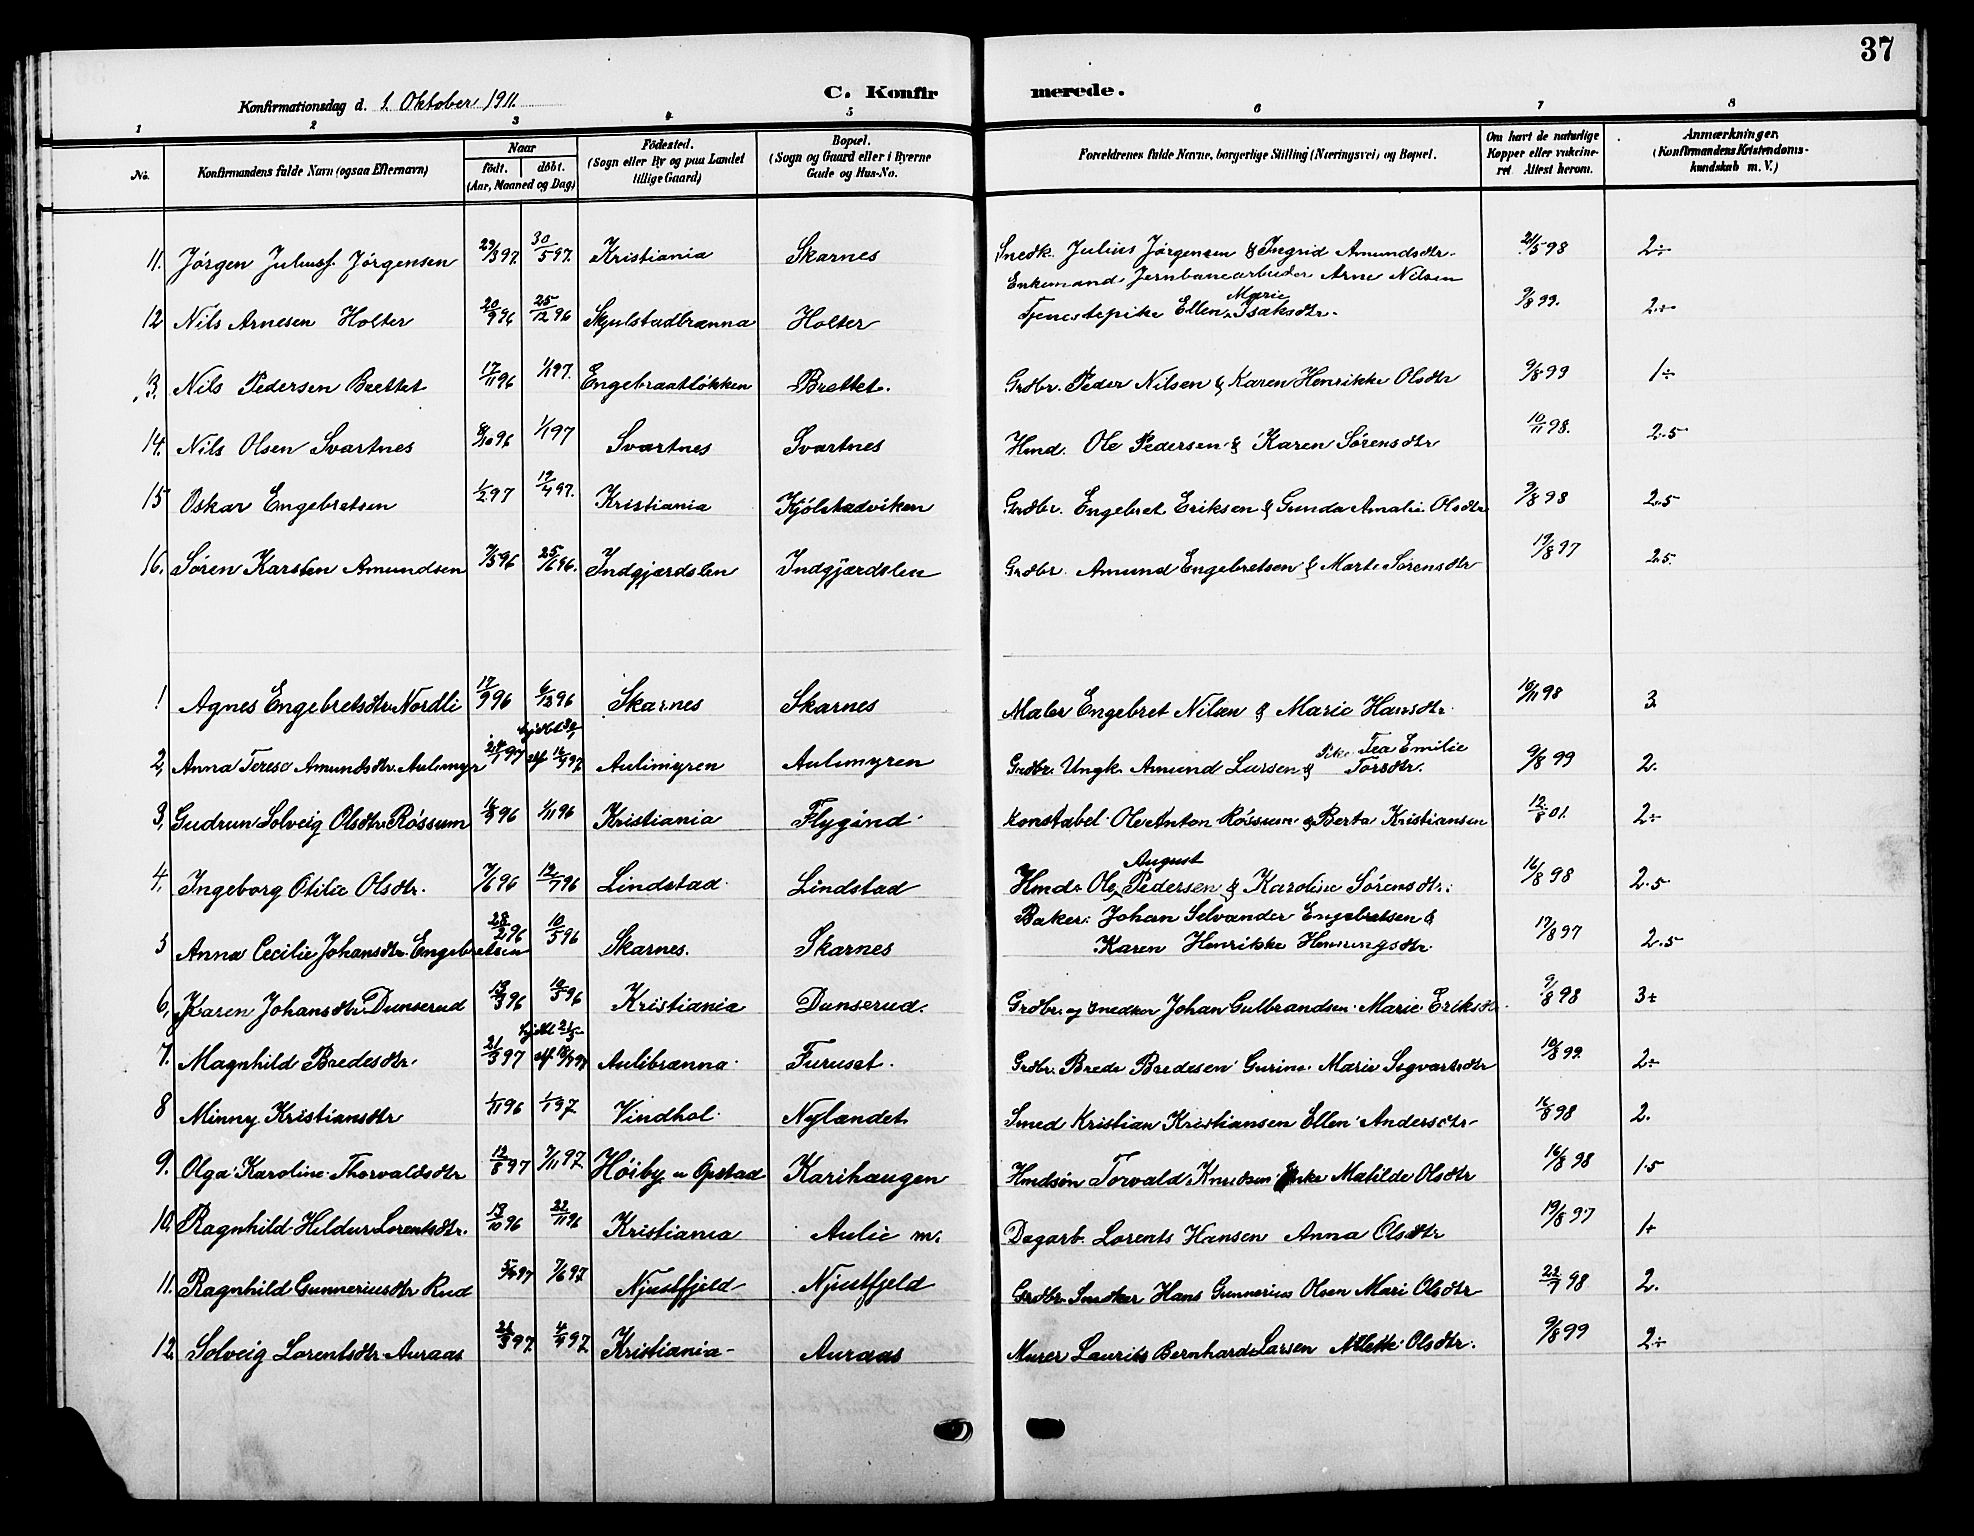 37
Konfirmationsdag d. 1. Oktober 1911.
C. Konfirmerede.
1 2 3 4 5 6 7 8
No. Konfirmandens fulde Navn (ogsaa Efternavn) Naar födt. döbt. (Aar, Maaned og Dag) Födested. (Sogn eller By og paa Landet tillige Gaard) Bopæl. (Sogn og Gaard eller i Byerne Gade og Hus-No. Forældrenes fulde Navne, borgerlige Stilling (Næringsvei) og Bopæl. Om havt de naturlige Kopper eller vakcineret. Attest herom. Anmærkninger. (Konfirmandens Kristendomskundskab m. V.)
11. Jörgen Juliusf. Jörgensen 29/3 97. 30/5 97. Kristiania Skarnes Snedk. Julius Jörgensen & Ingrid Amundsdtr. 21/5 98 2÷
Enkemand Jernbanearbeider Arne Nilsen
12 Nils Arnesen Holter 20/9 96 25/12 96 Skjulstadbrænna Holter Tjenestepike Ellen Marie Isaksdtr. 9/8 99. 2÷
13. Nils Pedersen Brettet 17/11 96 1/1 97. Engebraatlökken Brettet. Grdbr. Peder Nilsen & Karen Henrikke Olsdtr 9/8 99 1÷
14. Nils Olsen Svartnes 8/10 96 1/1 97 Svartnes Svartnes Hmd. Ole Pedersen & Karen Sörensdtr 10/11 98. 2.5
15 Oskar Engebretsen 1/2 97 19/4 97. Kristiania Kjölstadviken Grdbr. Engebret Eriksen & Gunda Amalie Olsdtr 9/8 98 2.5
16. Sören Karsten Amundsen 7/5 96 25/6 96. Indgjærdslen Indgjærdslen Grdbr. Amund Engebretsen & Marte Sörensdtr 19/8 97 2.5.
1 Agnes Engebretsdtr. Nordli 17/9 96 6/12 96 Skarnes Skarnes Maler Engebret Nilsen & Marie Hansdtr. 16/11 98 3
2, Anna Terese Amundsdtr. Aulimyr Aulimyren Aulimyren Grdbr. Ungk. Amund Larsen & Pike Tea Emilie Torsdtr. 9/8 99 2.
3, Gudrun Solveig Olsdtr. Róssum 1/11 96 Kristiania Flygind Konstabel Ole Anton Róssum & Berta Kristiansen 12/8 01. 2÷
4, Ingeborg Otilie Olsdtr. 7/6 96 12/7 96 Lindstad Lindstad Hmd. Ole August Pedersen & Karoline Sörensdtr. 16/8 98 2.5
5 Anna Cecilie Johansdtr. Engebretsen 28/2 96 10/5 96 Skarnes. Skarnes Baker. Johan Selvander Engebretsen &
Karen Henrikke Henningsdtr. 17/8 97 2.5
6, Karen Johansdtr. Dunserud 18/3 96 10/5 96 Kristiania Dunserud. Grdbr. og Snedker Johan Gulbrandsen Marie Eriksdtr. 9/8 98 3+
7. Magnhild Bredesdtr. 21/3 97 Aulibrænna Furuset. Grdbr. Brede Bredesen Gurine Marie Sigvartsdtr 10/8 99. 2÷
8 Minny Kristiansdtr 1/11 96 1/1 97. Vindhol Nylandet. Smed Kristian Kristiansen Ellen Andersdtr 16/8 98 2.
9. Olga Karoline Thorvaldsdtr 12/8 97 7/11 97 Höiby u Opstad Karihaugen Hmdsön Torvald Knudsen Matilde Olsdtr 16/8 98 1.5
10. Ragnhild Hildur Lorentsdtr. 13/10 96 22/11 96 Kristiania Aulie m. Dagarb. Lorents Hansen Anna Olsdtr 19/8 97 1+
11. Ragnhild Gunneriusdtr Rud 7/6 97 Njustfjeld Njustfjeld Grdbr. Snedker Hans Gunnerius Olsen Mari Olsdtr 22/7 98 2.
12. Solveig Lorentsdtr Auraas 21/3 97. 4/9 97. Kristiania Auraas Murer Laurits Bernhard Larsen Alette Olsdtr. 9/8 99 2÷